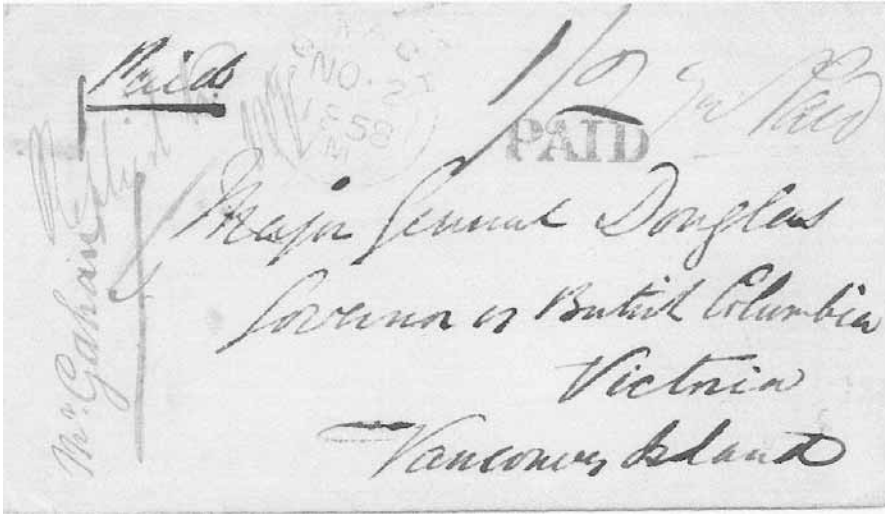 Paid
NO-2
58
1/2
Paid
PAID
Major General Douglas
Governor of British Columbia
Victoria
Vancouver Island
Mr. Gahan